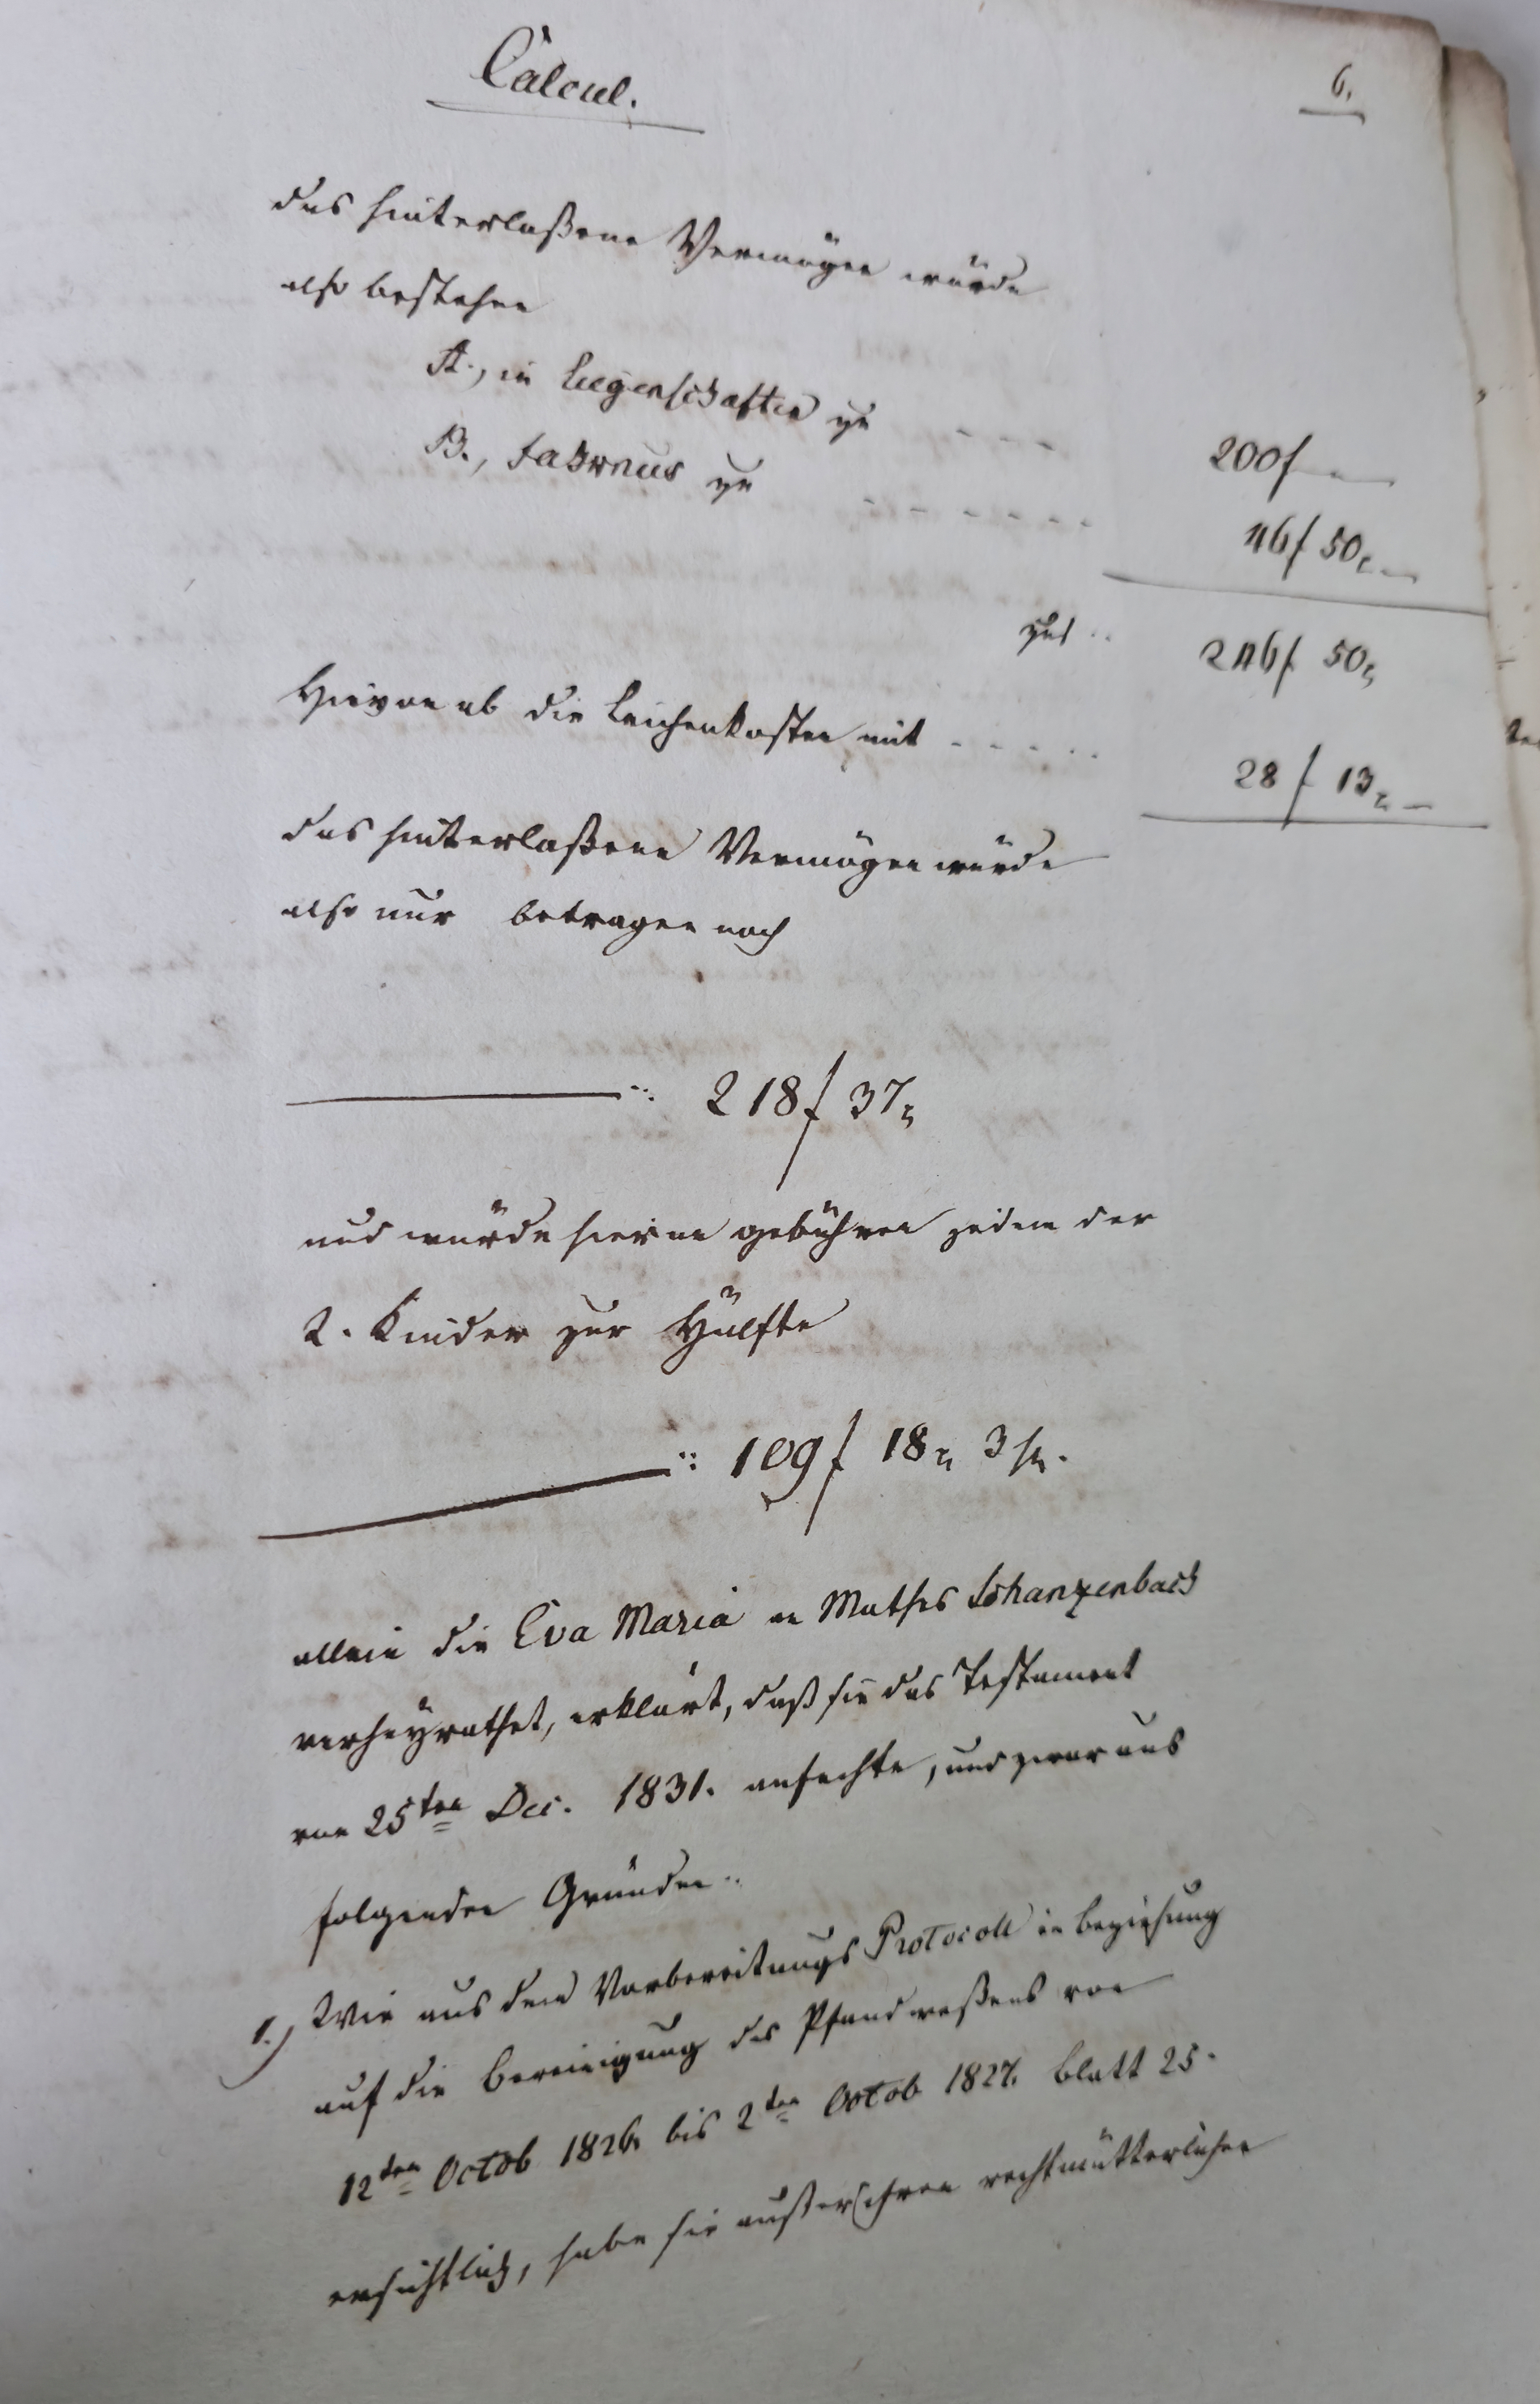 Calcul.
6.
das hinterlaßene Vermögen würde
also bestehen
A., in Liegenschaften zu - - - -
200 f —
B., Fahrnus zu - - - - - - -
46 f 50 x —
zus ..
246 f 50 x
Hievon ab die Leichenkosten mit - - - - -
28 f 13 x —
das hinterlaßene Vermögen würde
also nur betragen noch
——— :. 218 f 37 x
und würde hieran gebühren jedem der
2. Kinder zur Hälfte
——— :: 109 f 18 x 3 hl.
allein die Eva Maria an Mathes Schanzenbach
verheyrathet, erklärt, daß sie das Testament
vom 25ten Dec. 1831. anfechte, und zwar aus
folgenden Gründen ..
1.) Wie aus dem Vorbereitungs Protocoll in beziehung
auf die Bereinigung des Pfandweßens von
12ten Octob 1826. bis 2ten Octob 1827. Blatt 25.
ersichtlich, habe sie außer ihren rechtmütterlichen